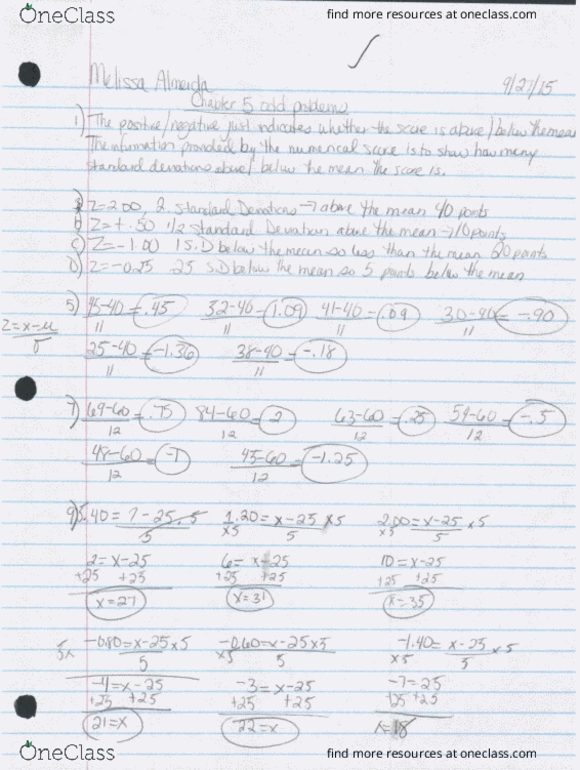 OneClass find more resources at oneclass.com
Melissa Almeida 9/27/15
Chapter 5 odd problems
1) The positive/negative just indicates whether the score is above/below the mean
The information provided by the numerical score is to show how many
standard deviations above/below the mean the score is.
Z=2.00, 2 standard Deviations → above the mean 40 points
b) Z=+.50 1/2 standard Deviation above the mean → 10 points
c) Z=-1.00 1 S.D below the mean so less than the mean 20 points
d) Z=-0.25 .25 S.D below the mean so 5 points below the mean
5) 45-40 = .45 32-40 = 1.09 41-40 = .09 30-40 = -.90
11 11 11 11
Z=x-μ
σ
25-40 = -1.36 38-40 = -.18
11 11
7) 69-60 = .75 84-60 = 2 63-60 = .25 54-60 = -.5
12 12 12 12
48-60 = -1 45-60 = -1.25
12 12
9) .40 = ?-25 .5 1.20 = x-25 x5 2.00 = x-25 x5
5 x5 5 x5 5
2=x-25 6=x-25 10=x-25
+25 +25 +25 +25 +25 +25
x=27 x=31 x=35
5x -0.80=x-25x5 -0.60=x-25x5 -1.40= x-25 x5
5 x5 5 x5 5
-4=x-25 -3=x-25 -7=25
+25 +25 +25 +25 +25 +25
21=x 22=x x=18
OneClass find more resources at oneclass.com